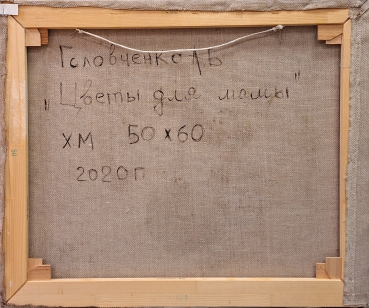 Головченко ЛБ
"Цветы для мамы"
ХМ 50×60
2020г